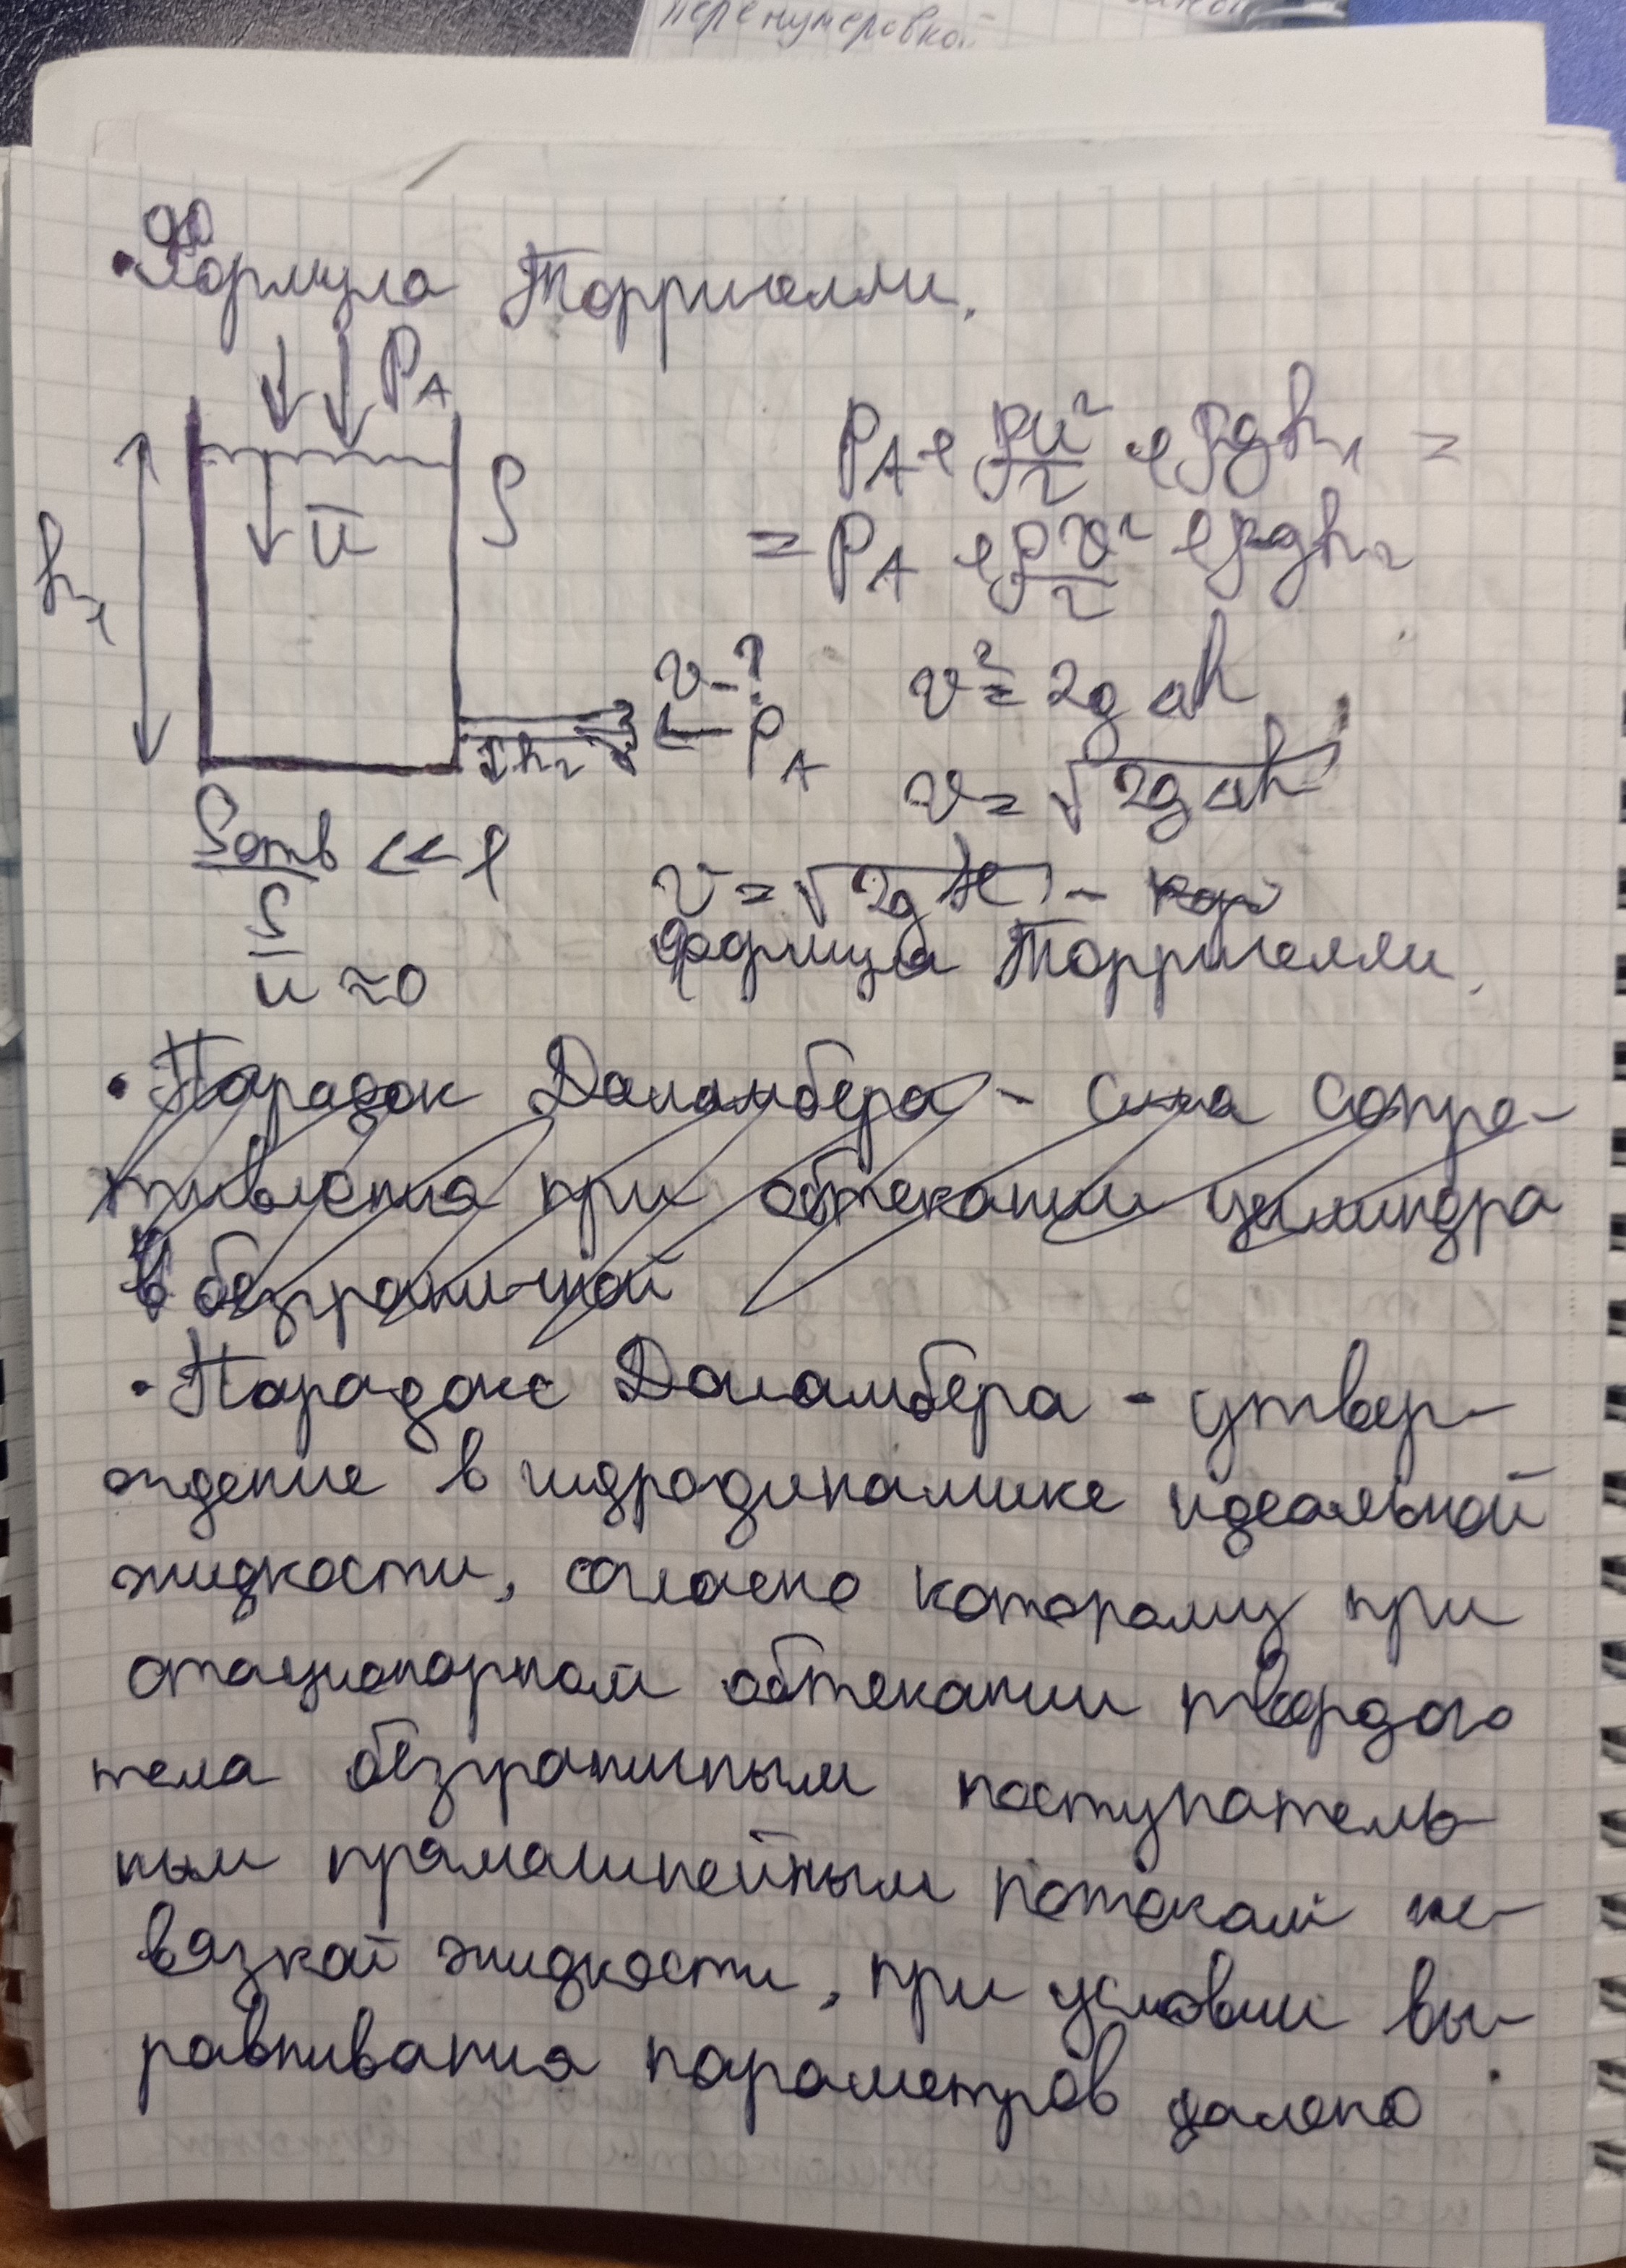 перенумеровкой
• Формула Торричелли.
P_A
h₁
ū
ρ
P_A + ρu²/2 + ρgh₁ =
= P_A + ρv²/2 + ρgh₂
v - ?
← P_A
h₂
v² = 2gΔh
v = √(2gΔh)
Sотв/S << 1
u ≈ 0
v = √(2gH) -
формула Торричелли.
• Парадок Даламбера - сила сопро-
тивления при обтекании цилиндра
в безграничной
• Парадокс Даламбера - утвер-
ждение в гидродинамике идеальной
жидкости, согласно которому при
стационарном обтекании твёрдого
тела безграничным поступатель-
ным прямолинейным потоком не-
вязкой жидкости, при условии вы-
равнивания параметров далеко